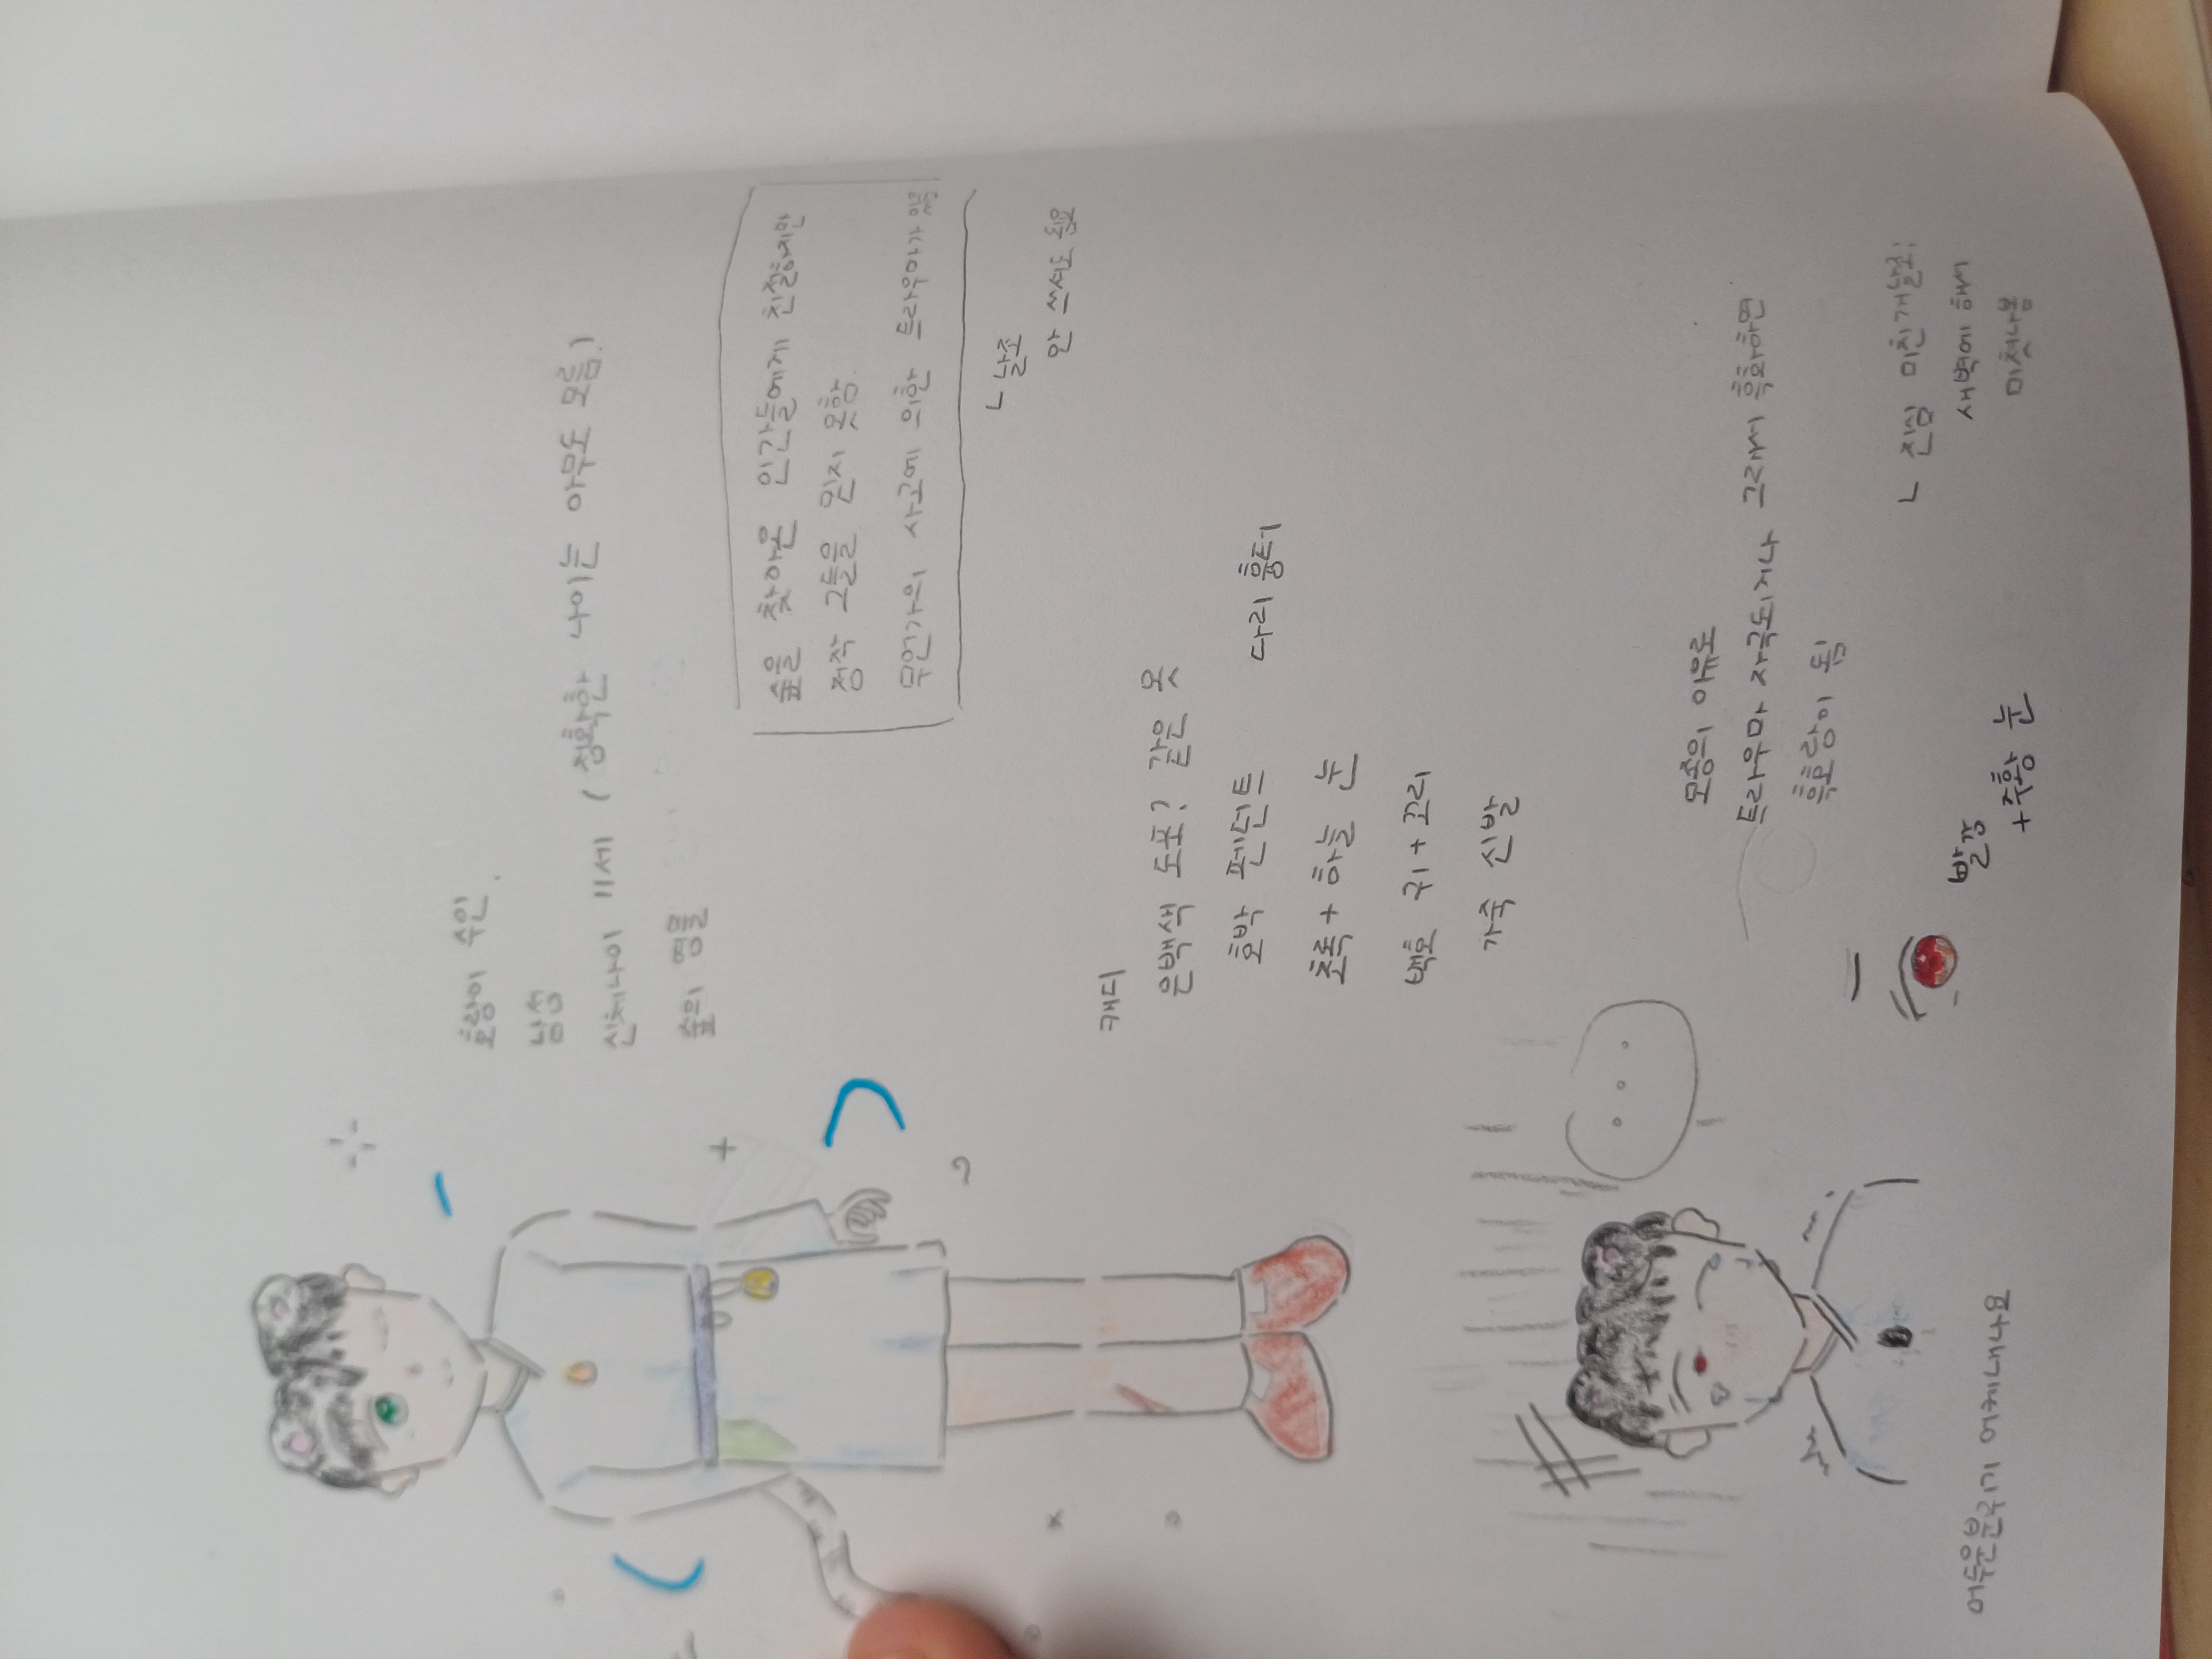 호랑이 수인.
남성
신체나이 11세 (정확한 나이는 아무도 모름.)
숲의 영물
숲을 찾아온 인간들에게 친절하지만
정작 그들을 믿지 못함.
무언가의 사고에 의한 트라우마가 있음
ㄴ 날조
안 쓰셔도 됨요
캐디
은백색 도포? 같은 옷
호박 펜던트 다리 흉터
초록 + 하늘 눈
백호 귀 + 꼬리
가죽 신발
모종의 이유로
트라우마 자극되거나 그래서 흑화하면
흑호랑이 됨
ㄴ 진심 미친개날조;
새벽에 해서
미쳤나봄
빨강
+주황 눈
...
어두운분위기 어케내나요